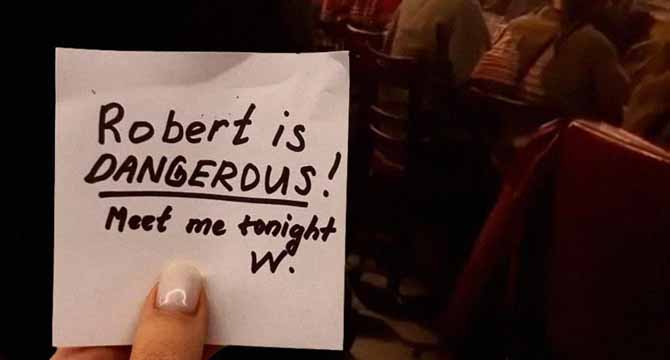 Robert is
DANGEROUS!
Meet me tonight
W.